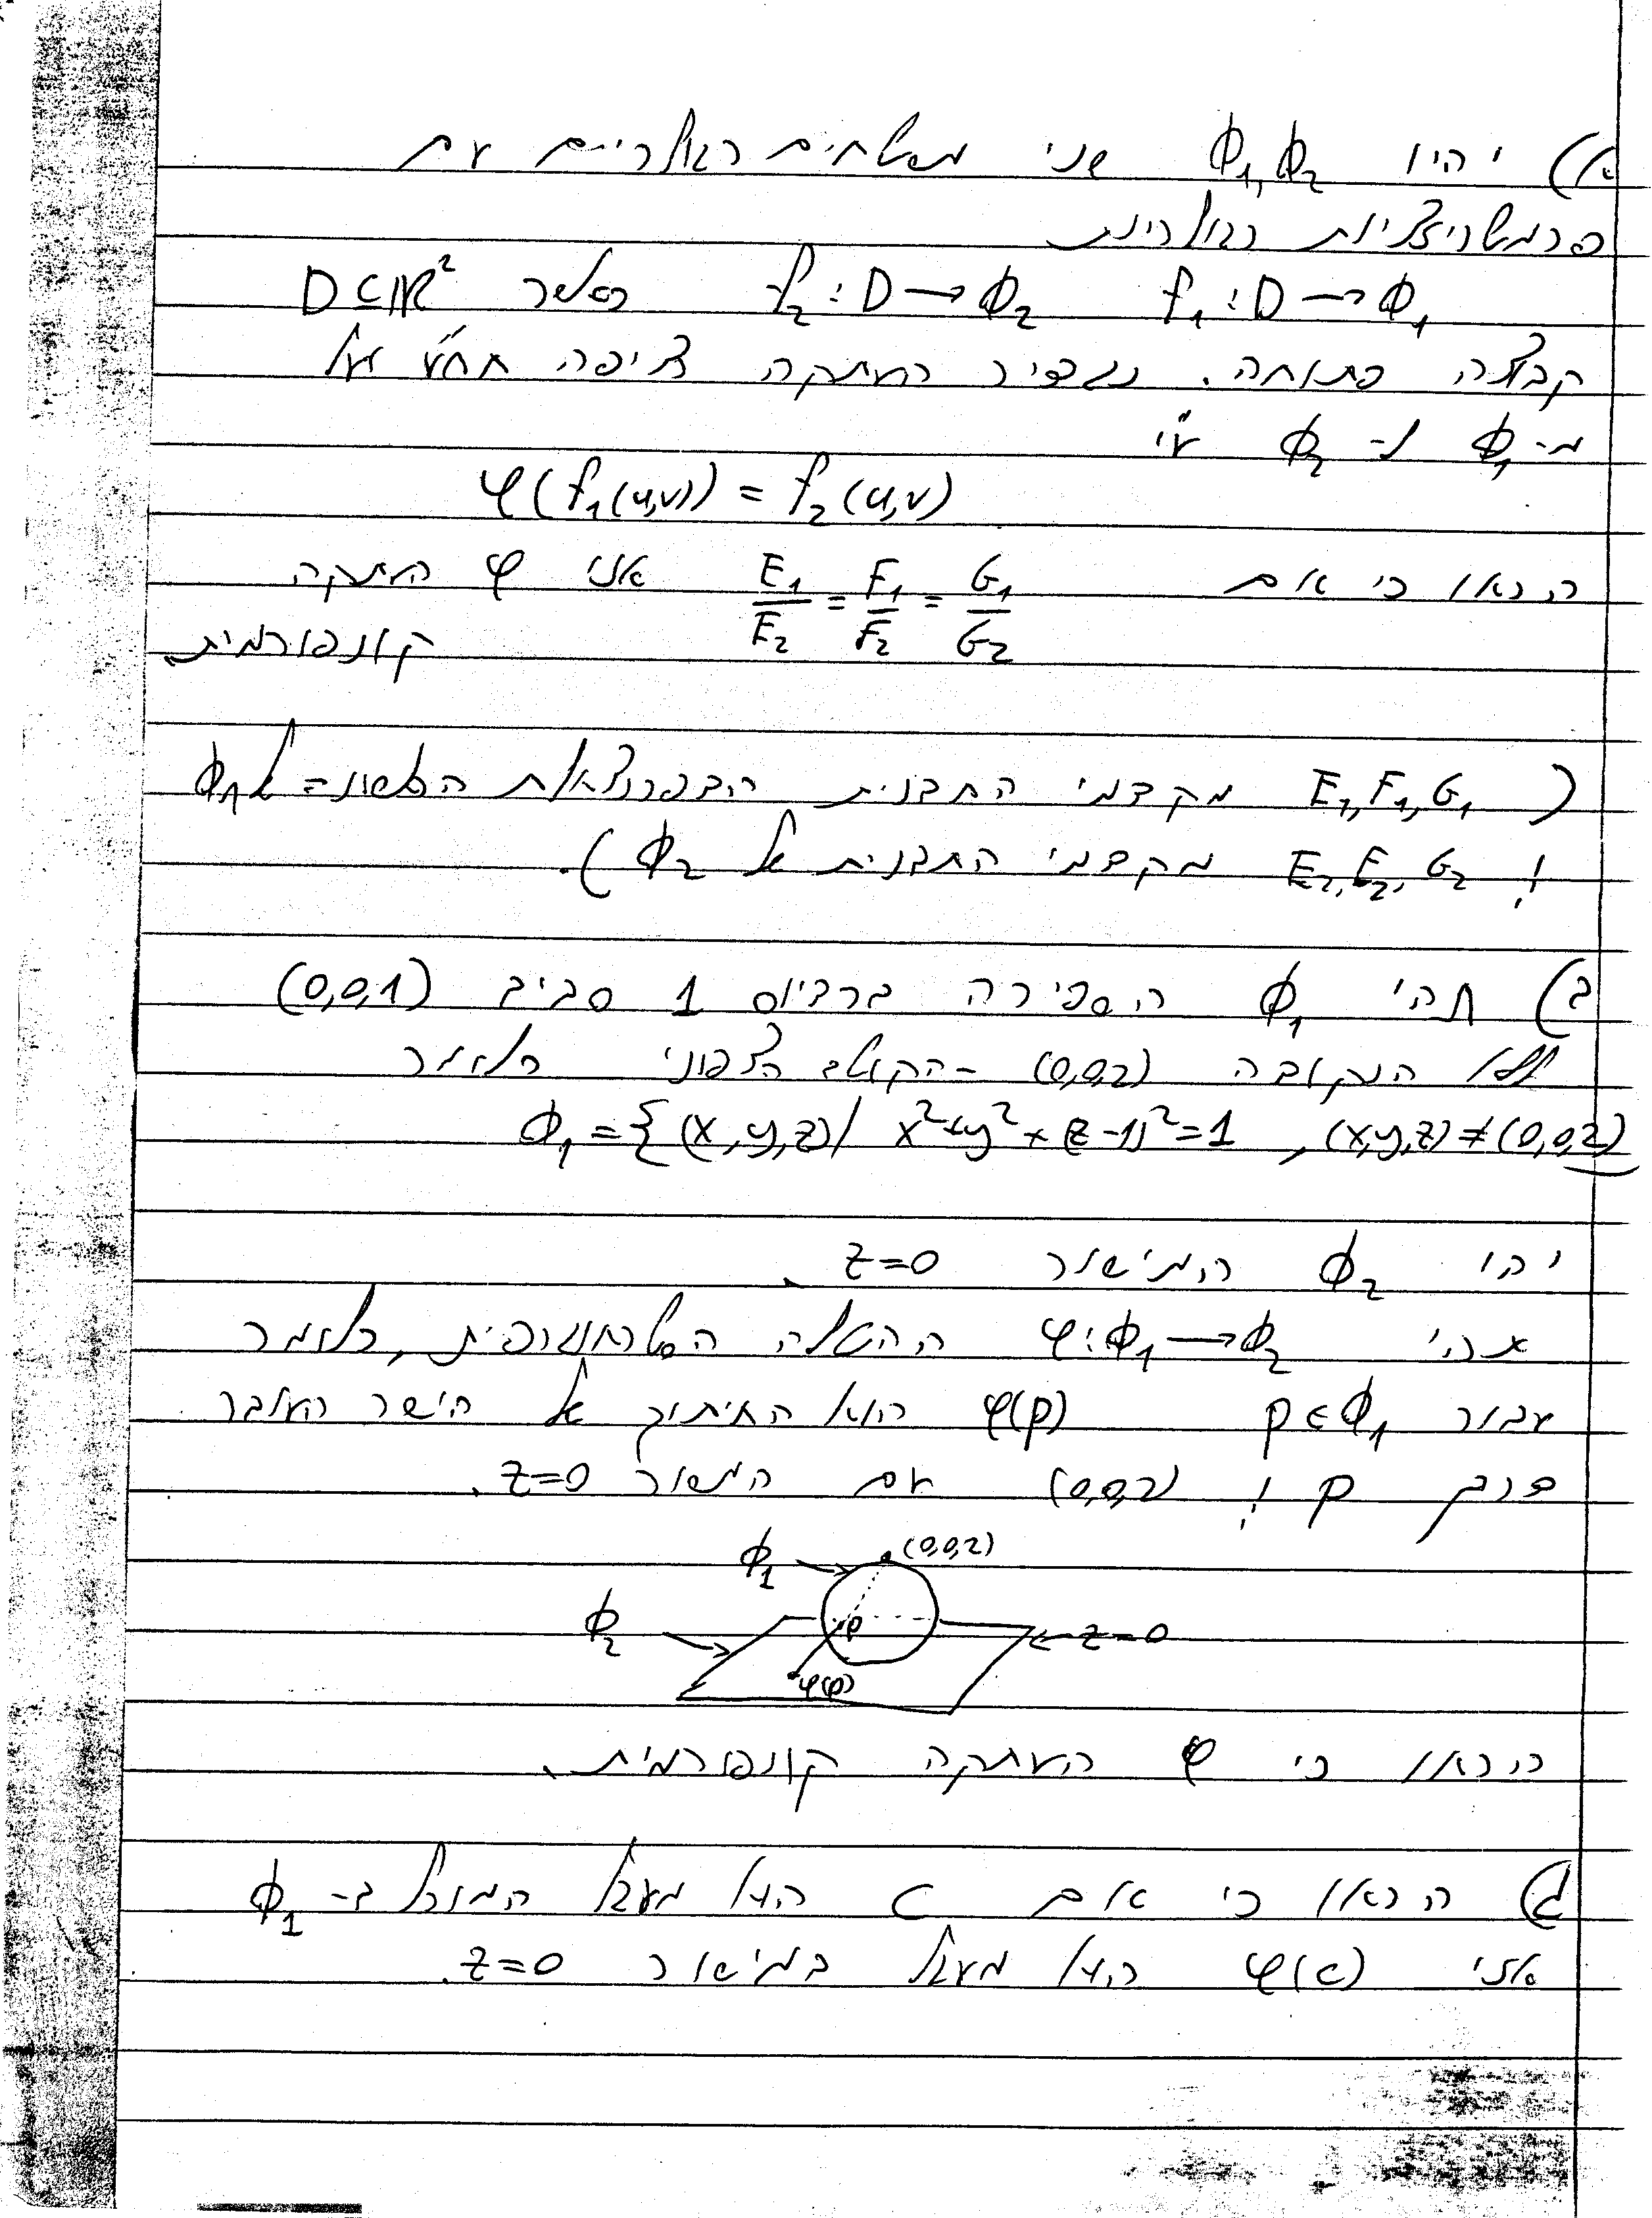 א) יהיו Φ₁,Φ₂ שני משטחים רגולריים עם
פרמטריזציות רגולריות
f₁:D→Φ₁ f₂:D→Φ₂ כאשר D⊆ℝ²
קבוצה פתוחה. נגדיר העתקה ציפה חח"ע ועל
מ-Φ₁ ל-Φ₂ ע"י
φ(f₁(u,v)) = f₂(u,v)
הראו כי אם E₁/E₂ = F₁/F₂ = G₁/G₂ אזי φ העתקה
קונפורמית.
(E₁,F₁,G₁ מקדמי התבנית הדפרנציאלית הראשונה של Φ₁
ו E₂,F₂,G₂ מקדמי התבנית של Φ₂).
ב) תהי Φ₁ הספירה ברדיוס 1 סביב (0,0,1)
ללא הנקודה (0,0,2) - הקוטב הצפוני כלומר
Φ₁={(x,y,z)/ x²+y²+(z-1)²=1 , (x,y,z)≠(0,0,2)
יהי Φ₂ המישור z=0.
תהי φ:Φ₁→Φ₂ ההטלה הסטראוגרפית, כלומר
עבור p∈Φ₁ φ(p) הוא החיתוך של הישר העובר
דרך p ו (0,0,2) עם המישור z=0.
Φ₁ (0,0,2)
Φ₂ p z=0
φ(p)
הראו כי φ העתקה קונפורמית.
ג) הראו כי אם C הוא מעגל המוכל ב-Φ₁
אזי φ(c) הוא מעגל במישור z=0.